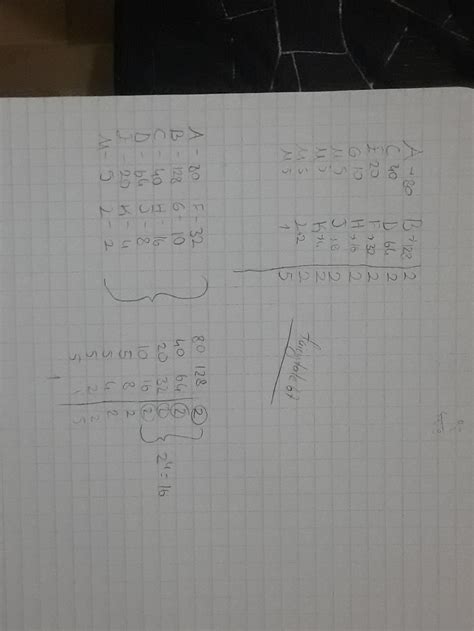 A = 80 B = 128 2
C 40 D 64 2
E 20 F = 32 2
G 10 H = 16 2
M 5 J = 8 2
M 5 K = 4 2
M 5 L = 2 2
M 5 1 5
A = 80 F = 32
B = 128 G = 10
C = 40 H = 16
D = 64 J = 8
E = 20 K = 4
M = 5 L = 2
80 128 2
40 64 2
20 32 2
10 16 2
2⁴ = 16
5 8 2
5 4 2
5 2 2
5 1 5
1